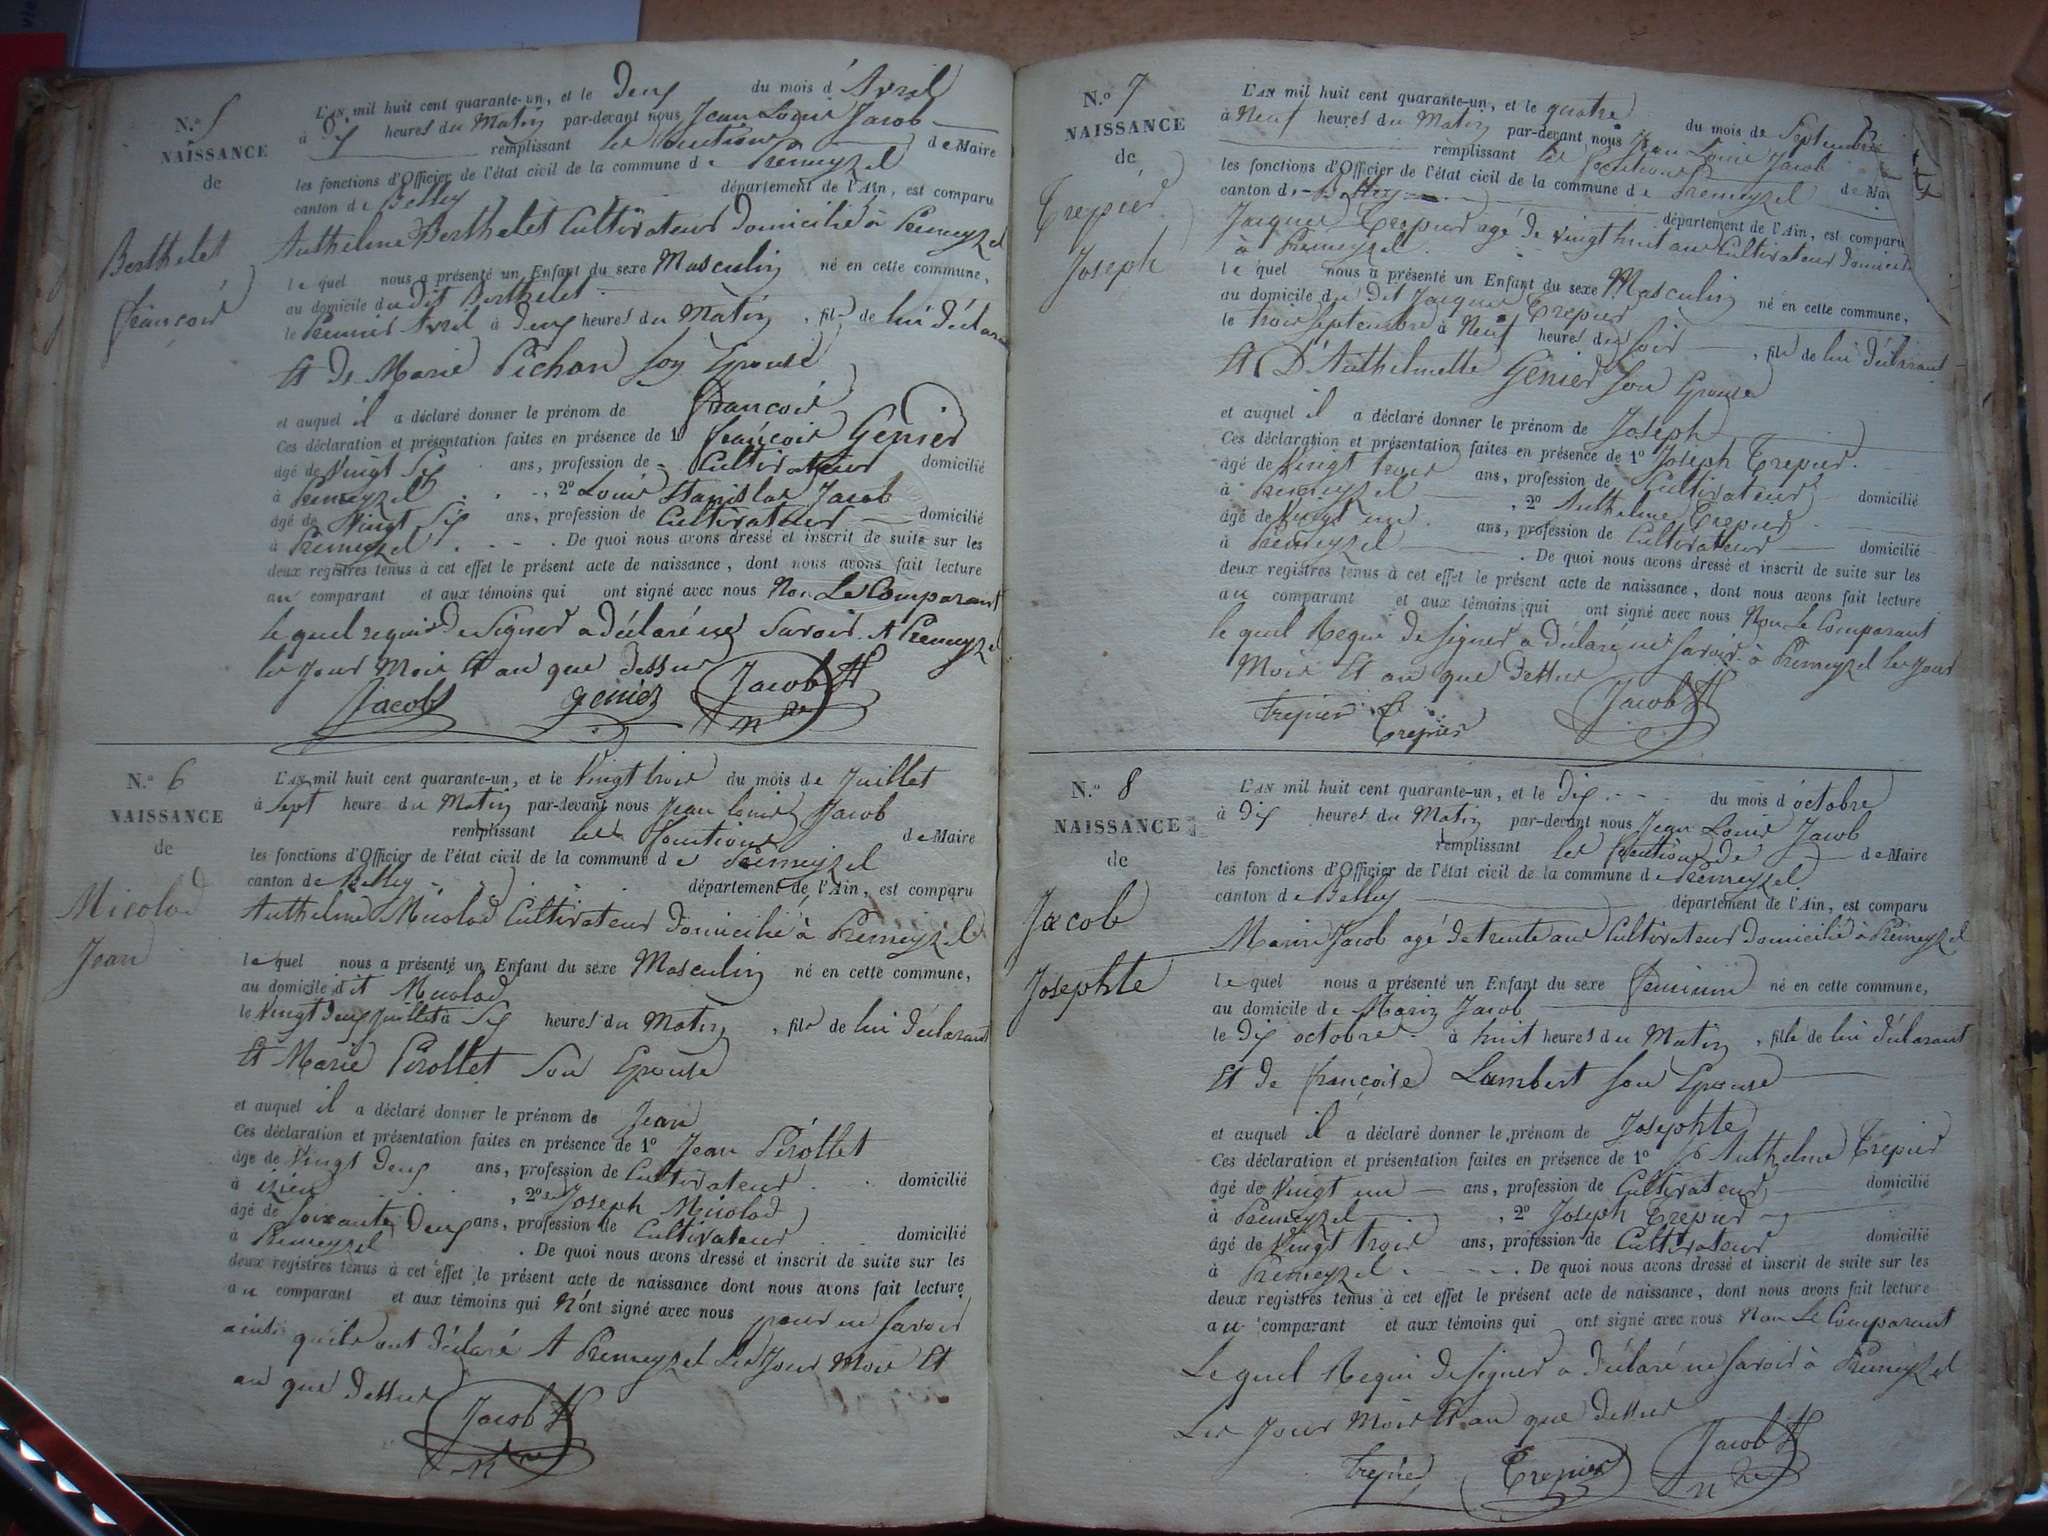 N.o 5
NAISSANCE
de
Berthelet
françois
L'AN mil huit cent quarante-un, et le Deux du mois d'Avril
à Six heures du Matin par-devant nous Jean Louis Jacob
remplissant les fonctions de Maire
les fonctions d'Officier de l'état civil de la commune de Prémeyzel
canton de Belley département de l'Ain, est comparu
Anthelme Berthelet Cultivateur domicilié à Premeyzel
lequel nous a présenté un Enfant du sexe Masculin né en cette commune,
au domicile du dit Berthelet
le Premier Avril à Deux heures du Matin, fils de lui déclarant
Et de Marie Pichon son Epouse
et auquel il a déclaré donner le prénom de françois
Ces déclaration et présentation faites en présence de 1o françois Génier
âgé de Vingt Six ans, profession de Cultivateur domicilié
à Premeyzel, 2o Louis Stanislas Jacob
âgé de Vingt Six ans, profession de Cultivateur domicilié
à Premeyzel. De quoi nous avons dressé et inscrit de suite sur les
deux registres tenus à cet effet le présent acte de naissance, dont nous avons fait lecture
au comparant et aux témoins qui ont signé avec nous Non Le Comparant
lequel requis de Signer a déclaré ne Savoir. A Premeyzel
les Jour Mois Et an que dessus
Jacob génier Jacob
N.o 6
NAISSANCE
de
Micolod
Jean
L'AN mil huit cent quarante-un, et le Vingt trois du mois de Juillet
à Sept heure du Matin par-devant nous Jean Louis Jacob
remplissant les fonctions de Maire
les fonctions d'Officier de l'état civil de la commune de Prémeyzel
canton de Belley département de l'Ain, est comparu
Anthelme Micolod Cultivateur Domicilié à Premeyzel
lequel nous a présenté un Enfant du sexe Masculin né en cette commune,
au domicile dit Micolod
le Vingt Deux Juillet à Six heures du Matin, fils de lui déclarant
Et Marie Pérollet Son Epouse
et auquel il a déclaré donner le prénom de Jean
Ces déclaration et présentation faites en présence de 1o Jean Pérollet
âgé de Vingt Deux ans, profession de Cultivateur domicilié
à izieu, 2o Joseph Micolod
âgé de Soixante Deux ans, profession de Cultivateur domicilié
à Premeyzel. De quoi nous avons dressé et inscrit de suite sur les
deux registres tenus à cet effet le présent acte de naissance dont nous avons fait lecture
au comparant et aux témoins qui N'ont signé avec nous pour ne Savoir
ainsi qu'ils ont déclaré A Premeyzel Les Jour Mois Et
an que Dessus
Jacob
N.o 7
NAISSANCE
de
Trepier
Joseph
L'AN mil huit cent quarante-un, et le quatre du mois de Septembre
à Neuf heures du Matin par-devant nous Jean Louis Jacob
remplissant les fonctions de Mai
les fonctions d'Officier de l'état civil de la commune de Premeyzel
canton de Belley département de l'Ain, est comparu
Jacques Trepier agé de vingt huit ans Cultivateur Domicilié
à Premeyzel
lequel nous a présenté un Enfant du sexe Masculin né en cette commune,
au domicile du Dit Jacques Trepier
le trois septembre à Neuf heures du Soir, fils de lui déclarant
Et D'Anthelmette Génier Son Epouse
et auquel il a déclaré donner le prénom de Joseph
Ces déclaration et présentation faites en présence de 1o Joseph Trepier
âgé de Vingt trois ans, profession de Cultivateur domicilié
à Premeyzel, 2o Anthelme Trepier
âgé de Vingt un ans, profession de Cultivateur domicilié
à Premeyzel. De quoi nous avons dressé et inscrit de suite sur les
deux registres tenus à cet effet le présent acte de naissance, dont nous avons fait lecture
au comparant et aux témoins qui ont signé avec nous Non Le Comparant
lequel Requi de Signer a déclaré ne savoir. à Premeyzel les Jour
Mois Et an que Dessus
trepier Trepier Jacob
N.o 8
NAISSANCE
de
Jacob
Josephte
L'AN mil huit cent quarante-un, et le Dix du mois d'octobre
à Dix heures du Matin par-devant nous Jean Louis Jacob
remplissant les fonctions de de Maire
les fonctions d'Officier de l'état civil de la commune de Premeyzel
canton de Belley département de l'Ain, est comparu
Marin Jacob agé de trente ans Cultivateur domicilié à Premeyzel
lequel nous a présenté un Enfant du sexe féminin né en cette commune,
au domicile de Marin Jacob
le Dix octobre à huit heures du Matin, fille de lui déclarant
Et de françoise Lambert Son Epouse
et auquel il a déclaré donner le prénom de Josephte
Ces déclaration et présentation faites en présence de 1o Anthelme Trepier
âgé de Vingt un ans, profession de Cultivateur domicilié
à Premeyzel, 2o Joseph Trepier
âgé de Vingt trois ans, profession de Cultivateur domicilié
à Premeyzel. De quoi nous avons dressé et inscrit de suite sur les
deux registres tenus à cet effet le présent acte de naissance, dont nous avons fait lecture
au comparant et aux témoins qui ont signé avec nous Non Le Comparant
Lequel Requi de signer a déclaré ne savoir à Premeyzel
Les Jour Mois Et an que dessus
trepier Trepier Jacob